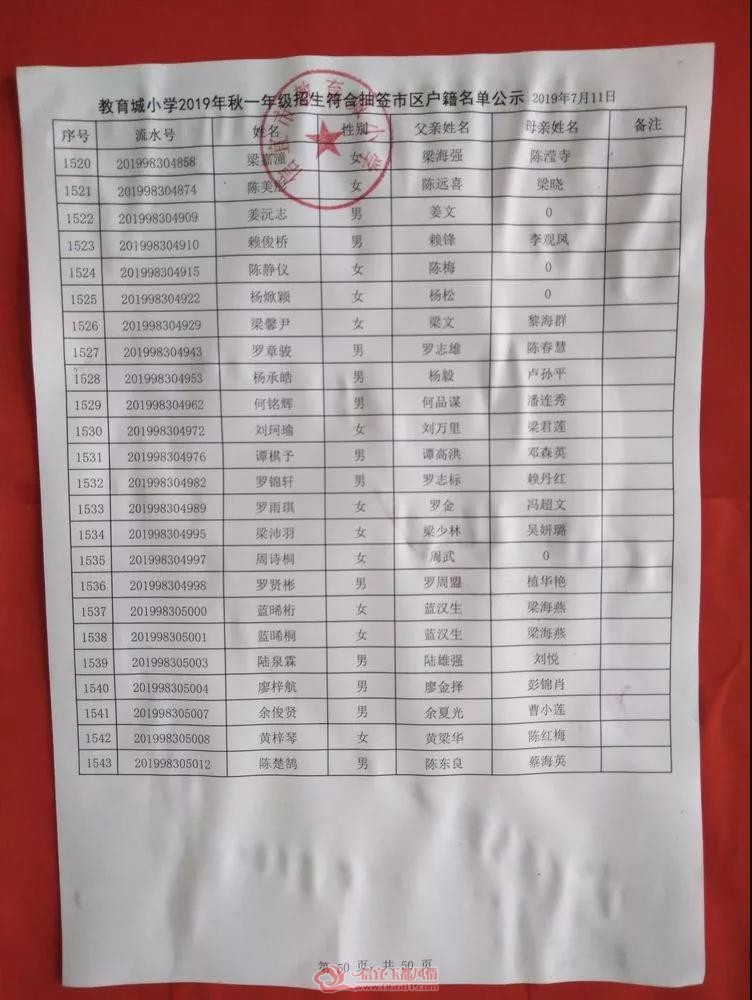 教育城小学2019年秋一年级招生符合抽签市区户籍名单公示 2019年7月11日
序号 流水号 姓名 性别 父亲姓名 母亲姓名 备注
1520 201998304858 梁嘉潼 女 梁海强 陈滢寺
1521 201998304874 陈美彤 女 陈远喜 梁晓
1522 201998304909 姜沅志 男 姜文 0
1523 201998304910 赖俊桥 男 赖锋 李观凤
1524 201998304915 陈静仪 女 陈梅 0
1525 201998304922 杨焮颖 女 杨松 0
1526 201998304929 梁馨尹 女 梁文 黎海群
1527 201998304943 罗章骏 男 罗志雄 陈春慧
1528 201998304953 杨承皓 男 杨毅 卢孙平
1529 201998304962 何铭辉 男 何品谋 潘连秀
1530 201998304972 刘珂瑜 女 刘万里 梁君莲
1531 201998304976 谭棋予 男 谭高洪 邓森英
1532 201998304982 罗锦轩 男 罗志标 赖丹红
1533 201998304989 罗雨琪 女 罗金 冯超文
1534 201998304995 梁沛羽 女 梁少林 吴妍璐
1535 201998304997 周诗桐 女 周武 0
1536 201998304998 罗贤彬 男 罗周盟 植华艳
1537 201998305000 蓝晞桁 女 蓝汉生 梁海燕
1538 201998305001 蓝晞桐 女 蓝汉生 梁海燕
1539 201998305003 陆泉霖 男 陆雄强 刘悦
1540 201998305004 廖梓航 男 廖金择 彭锦肖
1541 201998305007 余俊贤 男 余夏光 曹小莲
1542 201998305008 黄梓琴 女 黄梁华 陈红梅
1543 201998305012 陈楚鹄 男 陈东良 蔡海英
信宜市教育城小学
第 50 页，共 50 页
信宜·玉都风情
www.06681.com